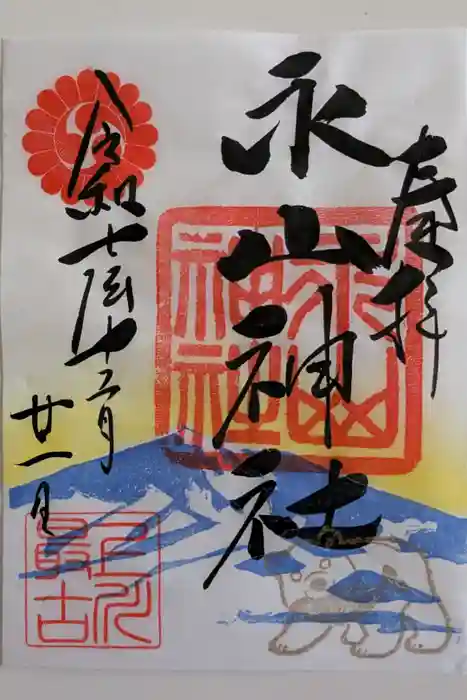 奉拝
永山神社
永山
神社
令和七年十二月
廿一日